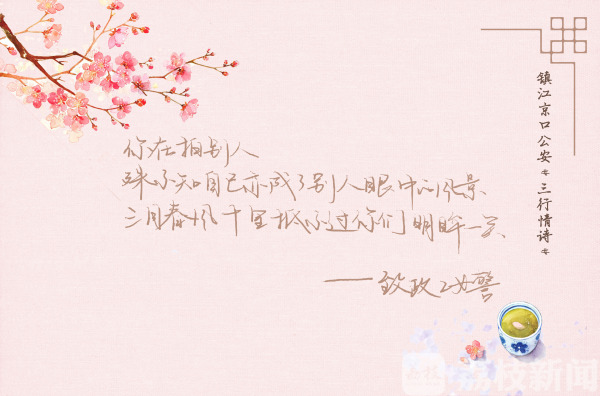 镇江京口公安*三行情诗*
你在拍别人
殊不知自己亦成了别人眼中的风景
三月春风十里抵不过你们明眸一笑
——致政工女警
荔枝新闻